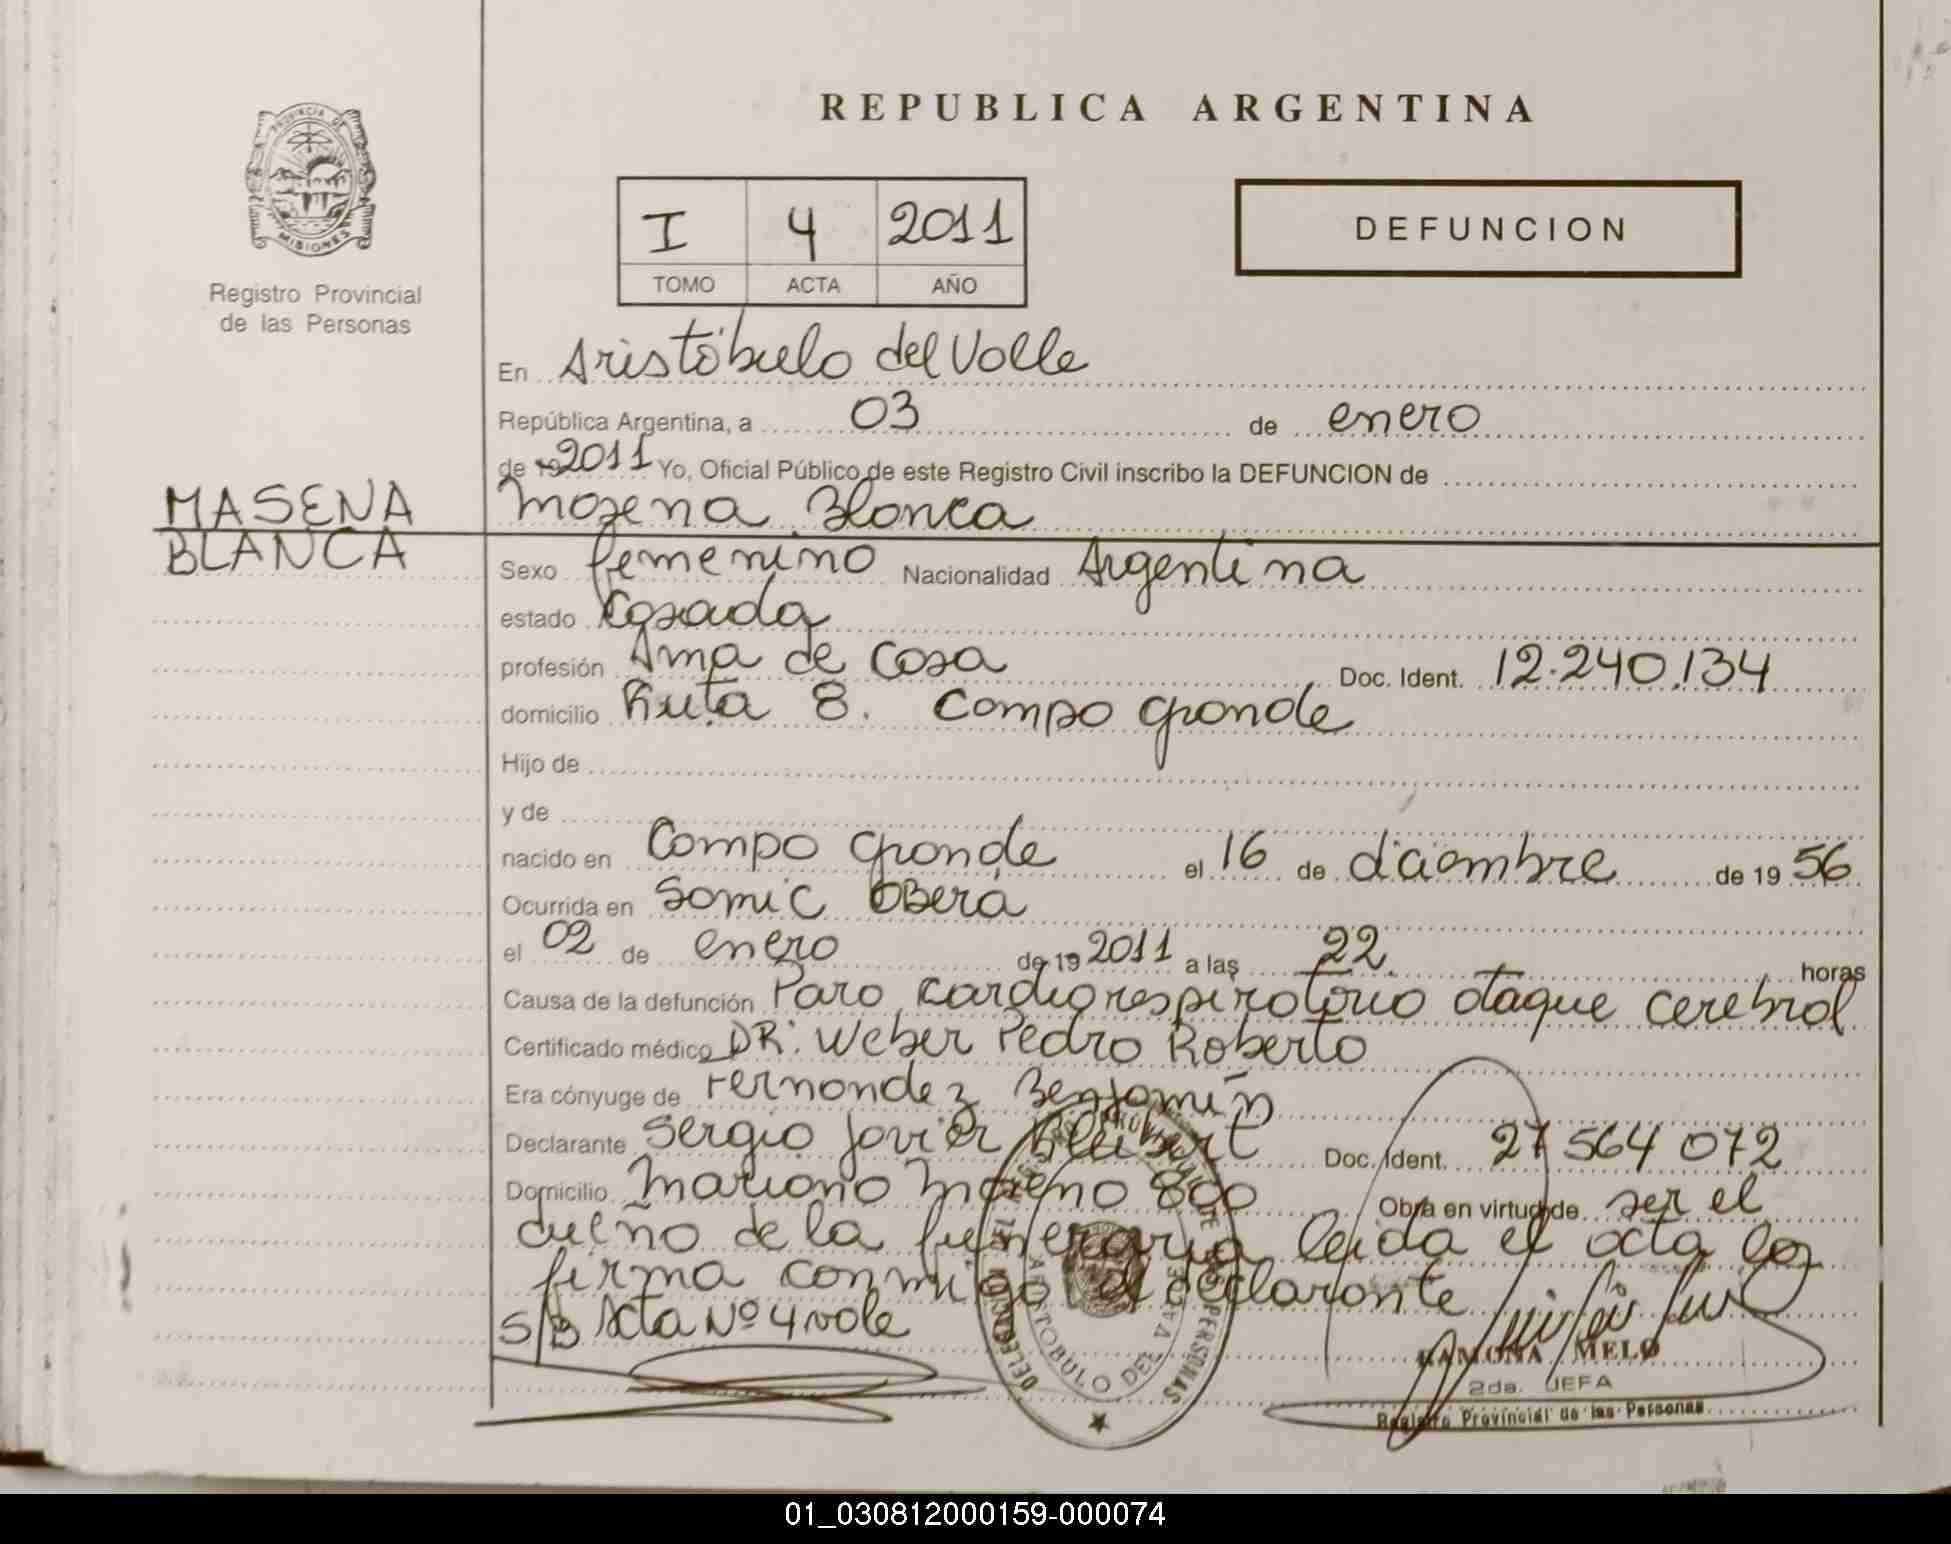 REPUBLICA ARGENTINA
PROVINCIA DE
MISIONES
Registro Provincial
de las Personas
I 4 2011
TOMO ACTA AÑO
DEFUNCION
En Aristóbulo del Valle
República Argentina, a 03 de enero
de 19 2011 Yo, Oficial Público de este Registro Civil inscribo la DEFUNCION de
MASENA
BLANCA
Masena Blanca
Sexo femenino Nacionalidad Argentina
estado Casada
profesión Ama de Casa Doc. Ident. 12.240.134
domicilio Ruta 8. Campo grande
Hijo de
y de
nacido en Campo grande el 16 de diciembre de 19 56
Ocurrida en Samic Oberá
el 02 de enero de 19 2011 a las 22 horas
Causa de la defunción Paro cardiorespiratorio ataque cerebral
Certificado médico DR: Weber Pedro Roberto
Era cónyuge de Fernandez Benjamín
Declarante Sergio Javier Doc. Ident. 27 564 072
Domicilio Mariano Moreno 800 Obra en virtud de ser el
dueño de la funeraria leída el acta la
firma conmigo el declarante
S/B Acta Nº 4 vale
DELEGACION PERSONAS
ARISTOBULO DEL VALLE
RAMONA MELO
2da. JEFA
Registro Provincial de las Personas
01_030812000159-000074